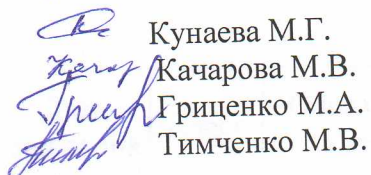 Кунаева М.Г.
Качарова М.В.
Гриценко М.А.
Тимченко М.В.